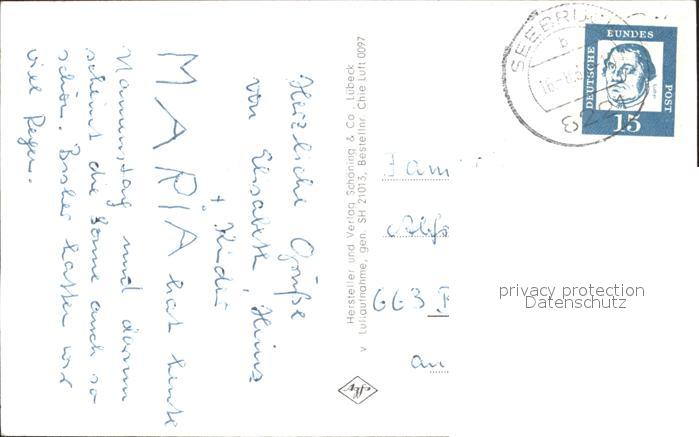 Herzliche Grüße
von Elisabeth, Heinz
+ Kinder
MARIA hat heute
Namenstag und darum
scheint die Sonne auch so
schön. Bisher hatten wir
viel Regen.
Hersteller und Verlag Schöning & Co., Lübeck
v Luftaufnahme, gen. SH 21013, Bestellnr. Chie Luft 0097
SEEBRUCK
b
8221
DEUTSCHE
BUNDES
POST
15
Fam
663
an
privacy protection
Datenschutz